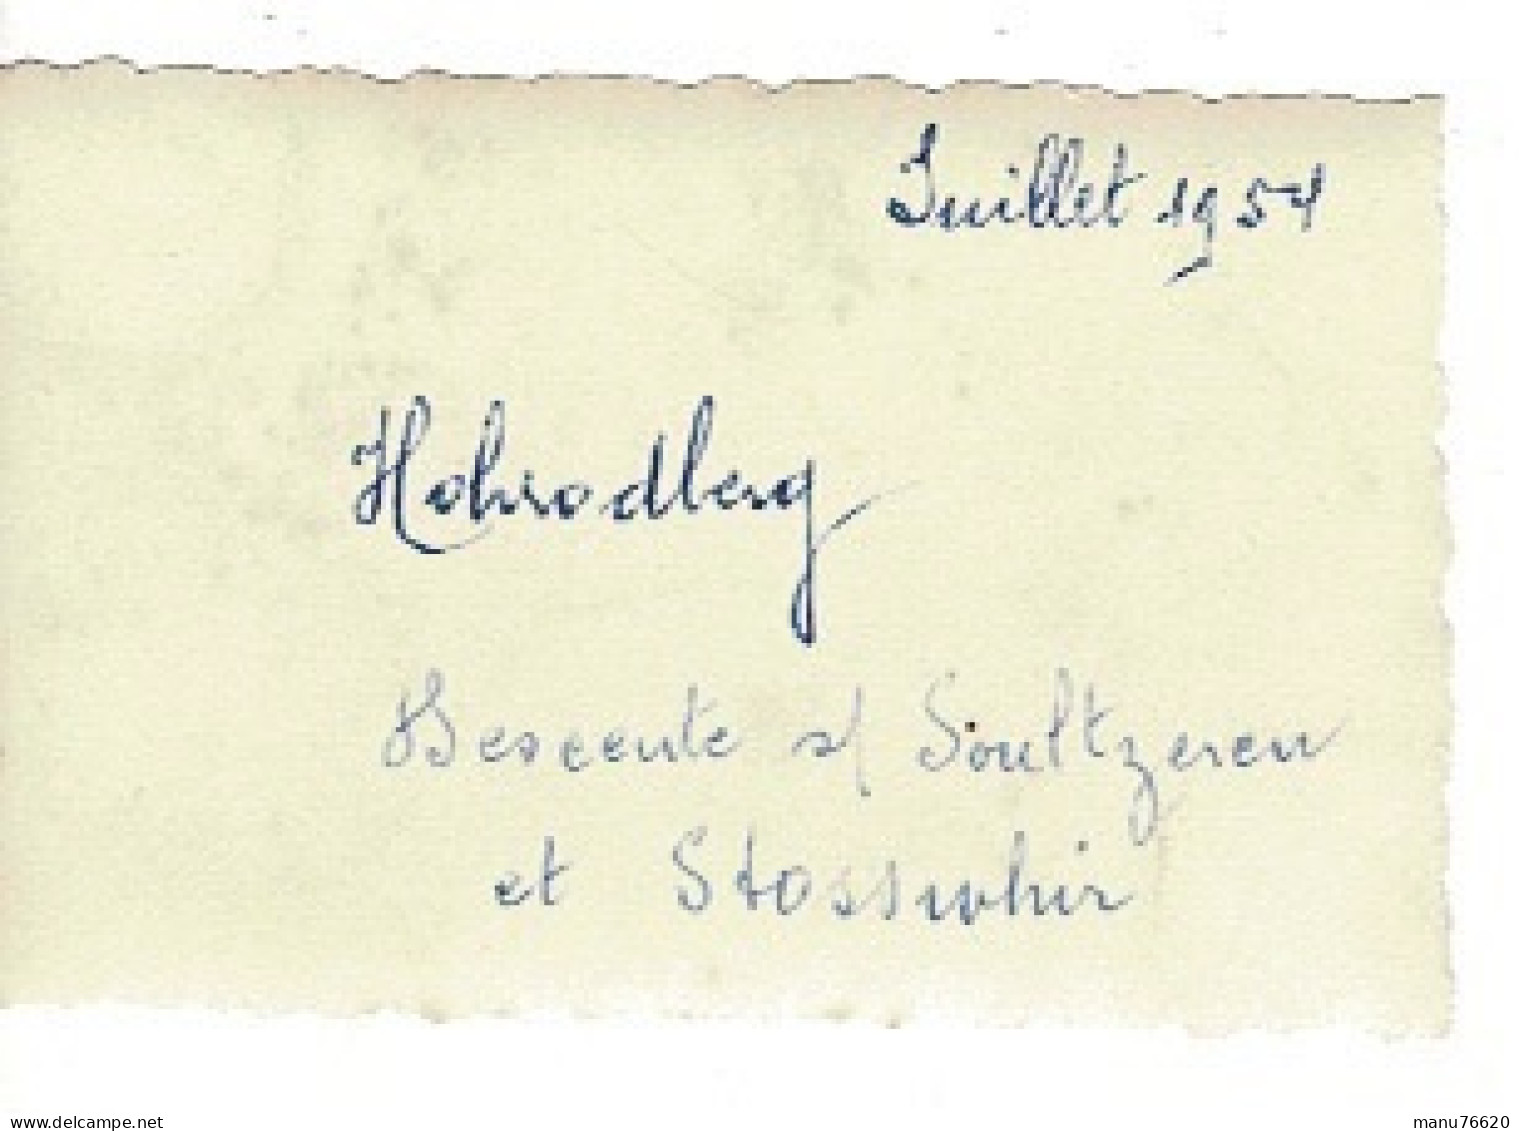 Juillet 1954
Hohrodberg
Descente s/ Soultzeren
et Stosswhir
delcampe.net
manu76620